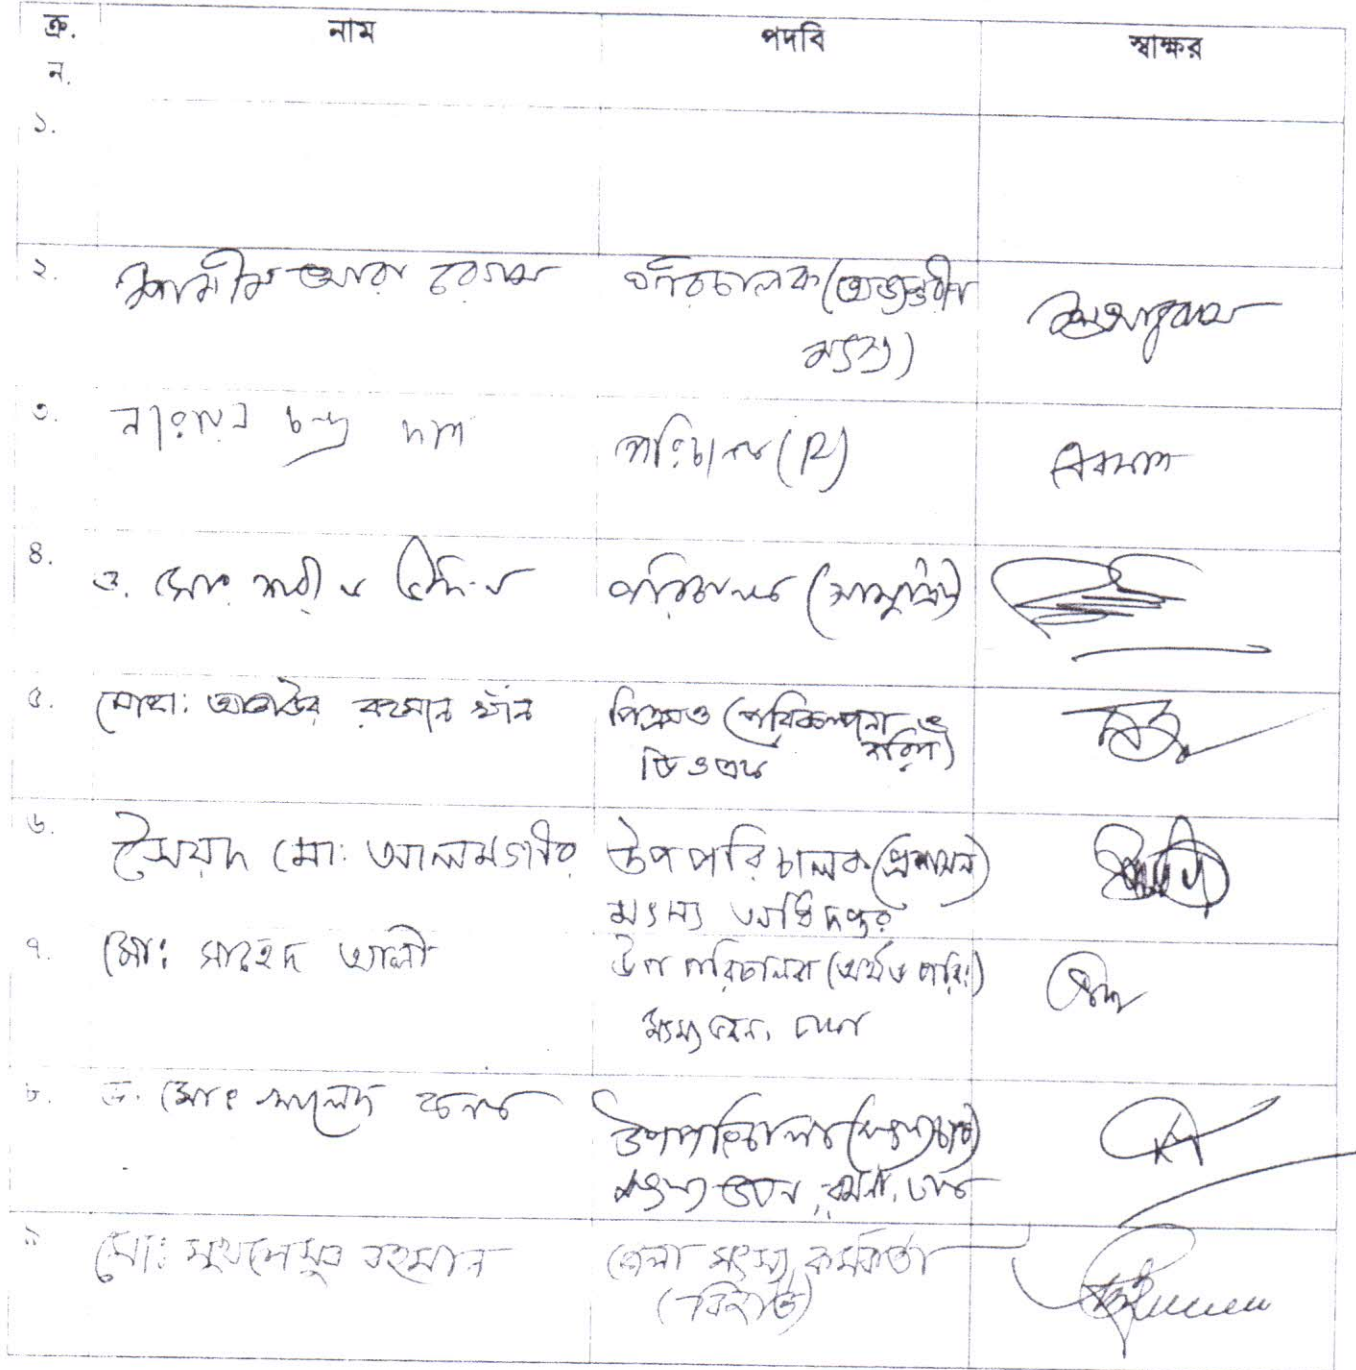 ক্র. নাম পদবি স্বাক্ষর
ন.
১.
২. শামীম আরা বেগম পরিচালক (অভ্যন্তরীণ
মৎস্য)
৩. নারায়ন চন্দ্র দাস পরিচালক (R)
৪. ড. মোঃ পরিচালক (সামুদ্রিক)
৫. মোহা: আতাউর রহমান খাঁন পিএসও (পরিকল্পনা ও
জরিপ)
ডিওএফ
৬. সৈয়দ মো: আলমগীর উপপরিচালক (প্রশাসন)
মৎস্য অধিদপ্তর
৭. মো: সাহেদ আলী উপ পরিচালক (অর্থ ও পরি:)
মৎস্য ভবন, ঢাকা
৮. ড. মোঃ খালেদ কনক উপপরিচালক (মৎস্যচাষ)
মৎস্য ভবন, রমনা, ঢাকা
৯ মো: মুখলেসুর রহমান জেলা মৎস্য কর্মকর্তা
(রিজার্ভ)